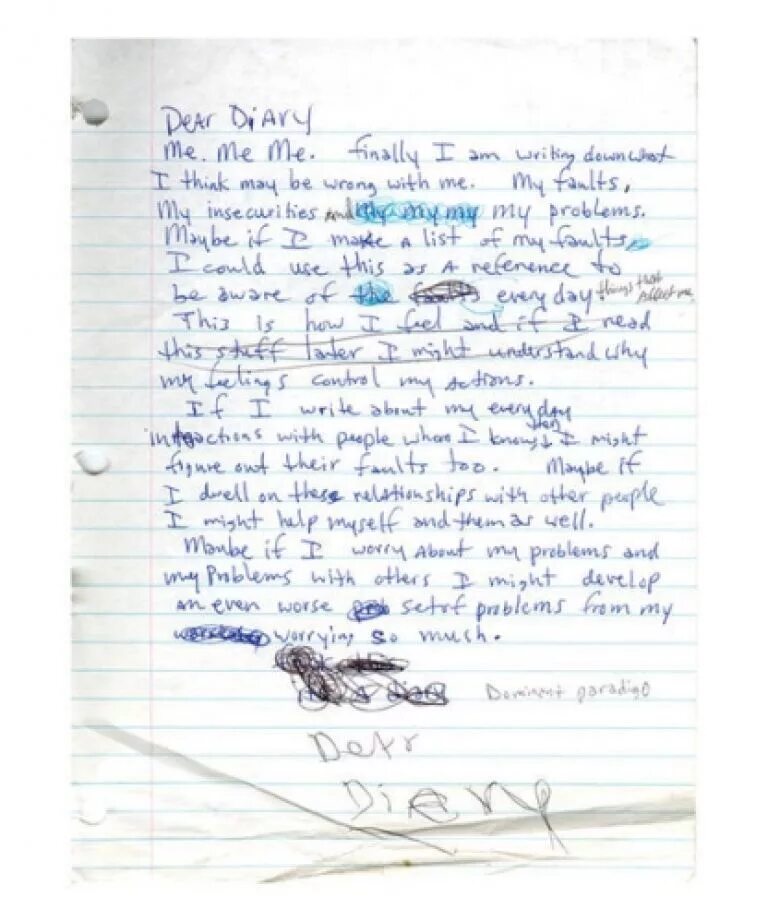 Dear Diary
Me. Me Me. finally I am writing down what
I think may be wrong with me. My faults,
My insecurities and my my my my problems.
Maybe if I make a list of my faults,
I could use this as a reference to
be aware of the faults every day things that affect me
This is how I feel and if I read
this stuff later I might understand why
my feelings control my actions.
If I write about my everyday
interactions with people whom I know then I might
figure out their faults too. Maybe if
I dwell on these relationships with other people
I might help myself and them as well.
Maybe if I worry About my problems and
my Problems with others I might develop
an even worse set of problems from my
worrying so much.
A diary Dominent paradigo
Dear
Diary